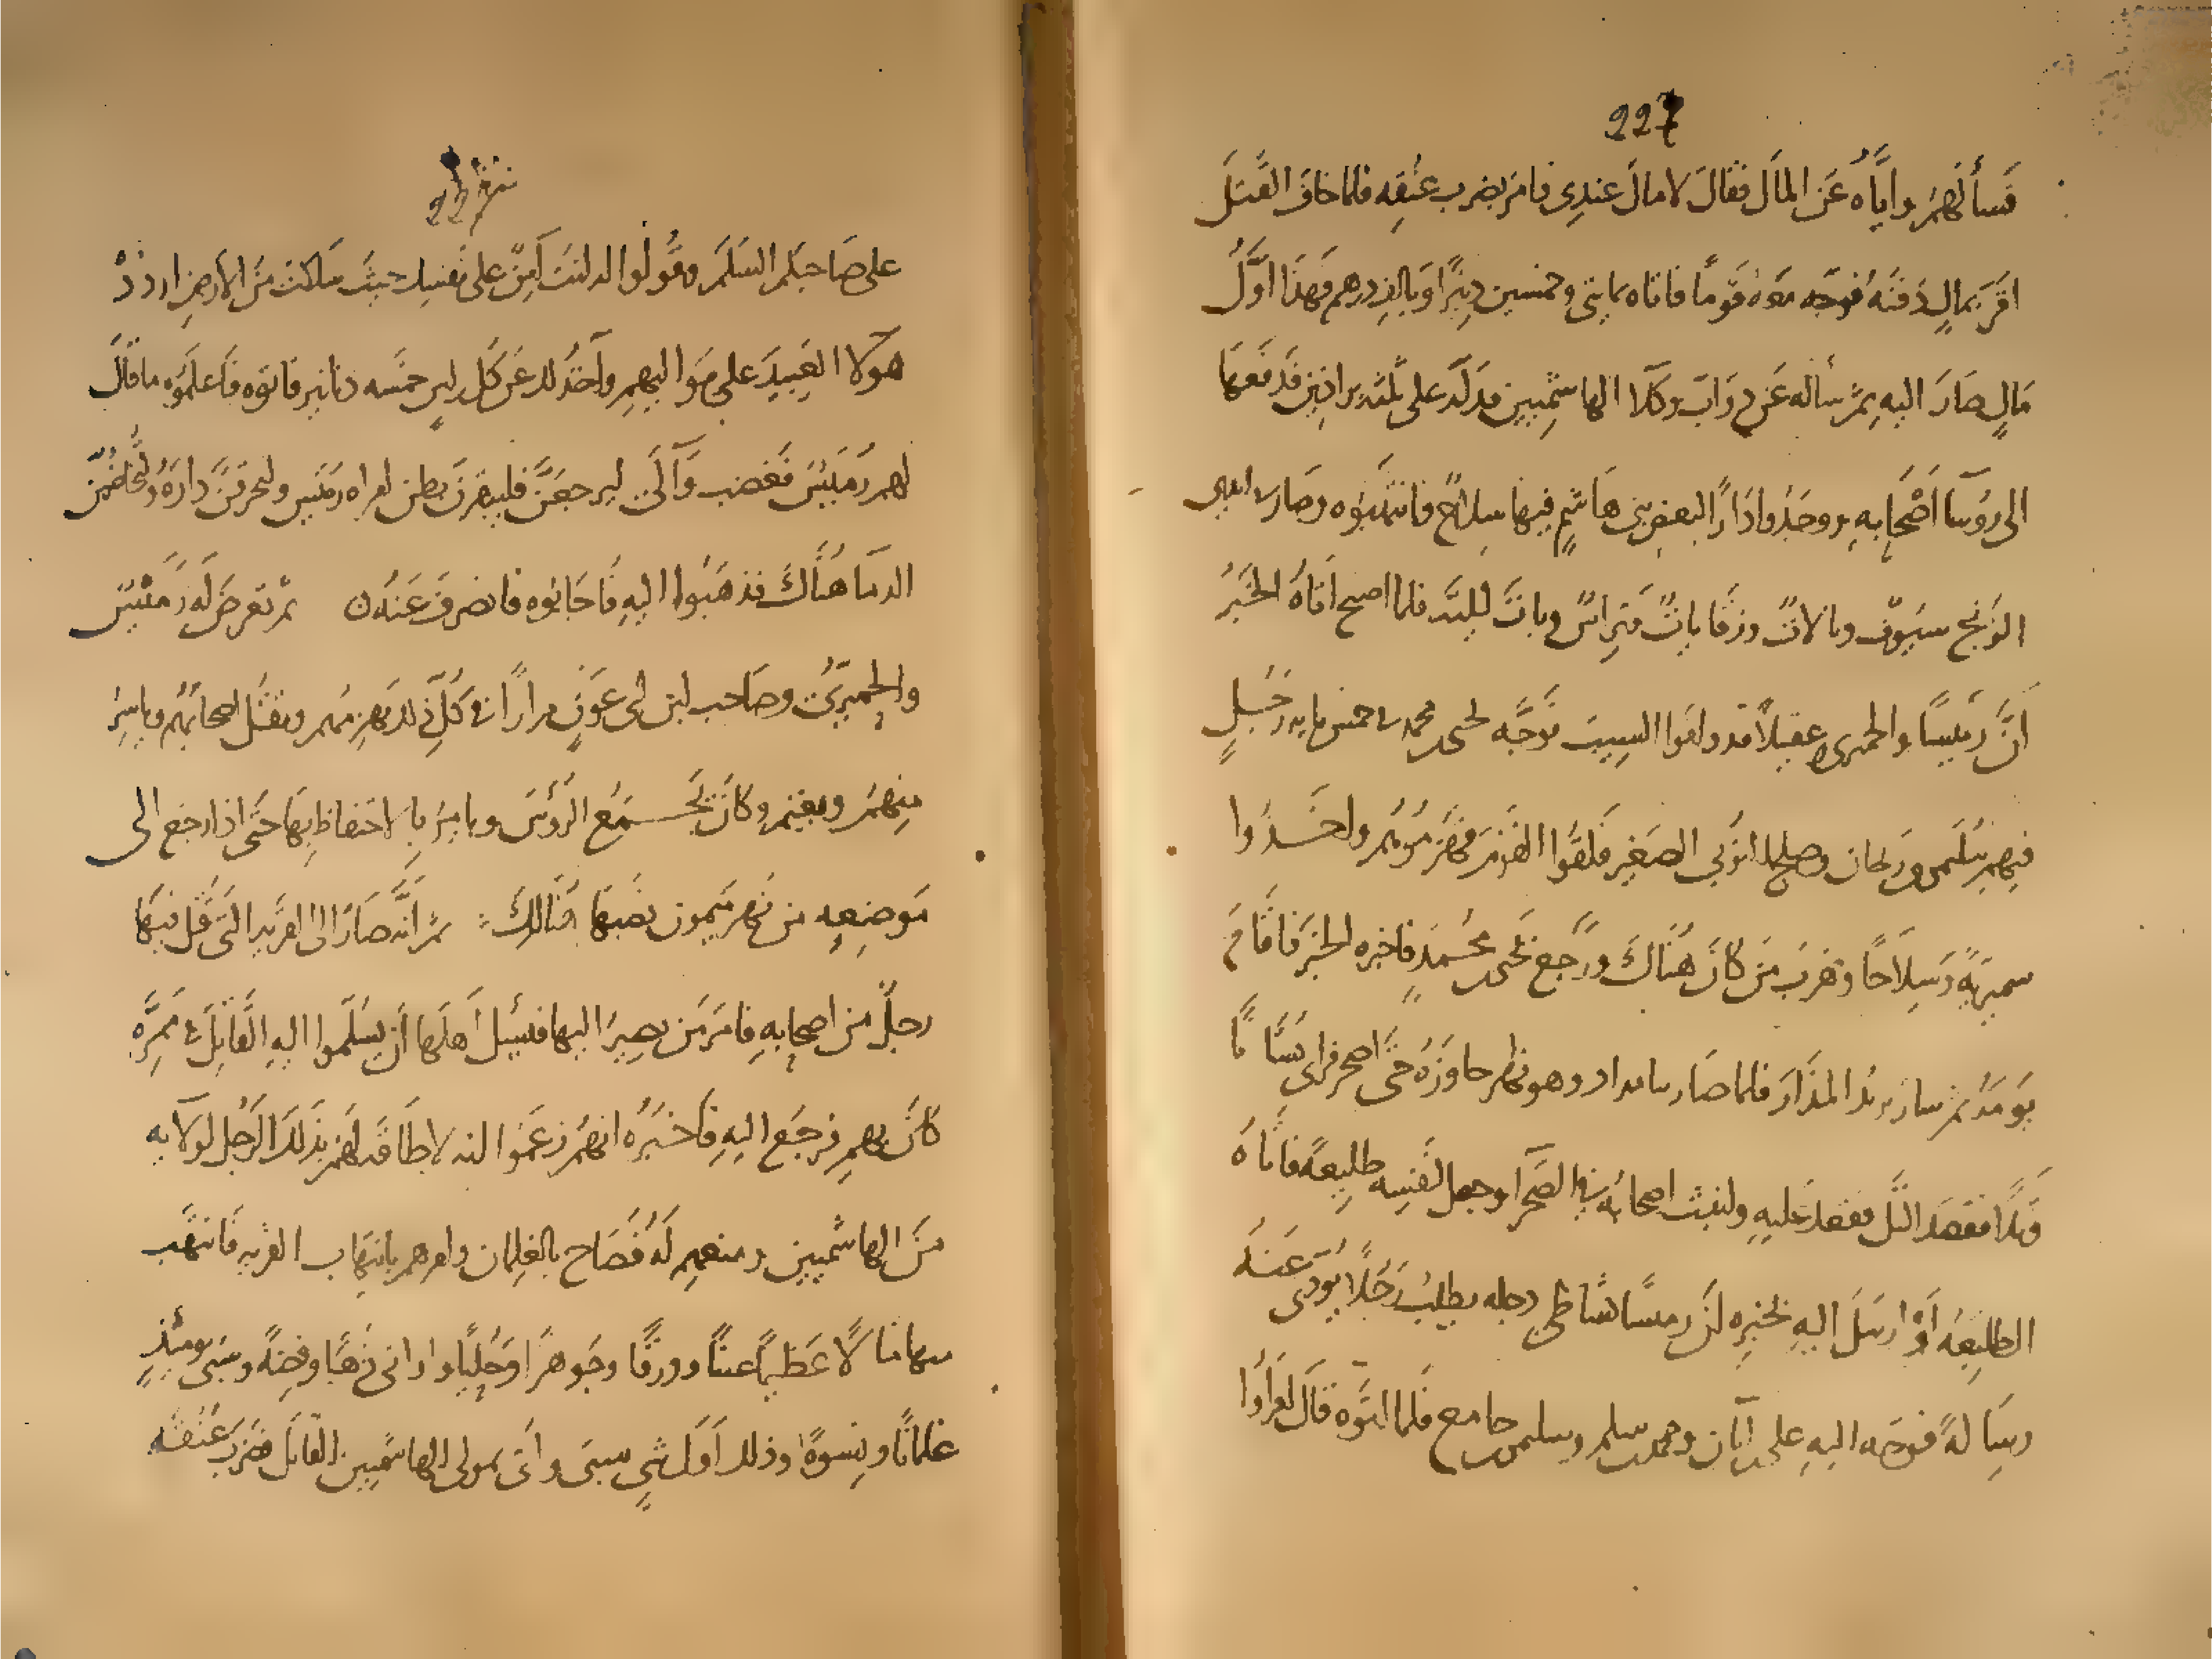 227
فسألهم واياه عن المال فقال لا مال عندى فامر بضرب عنقه فلما خاف القتل
اقر بمال دفنه فوجه معه قوما فاتاه بمايتى وخمسين دينرا وبالف درهم فهذا اول
مال صار اليه ثم ساله عن دواب وكلا الهاشميين فدله على ثلثه براذين فدفعها
الى روسا اصحابه ووجدوا دارا لبعض بنى هاشم فيها سلاح فانتهبوه وصار فى ايدى
الزنج سيوف وبالات وزقايات وتراس وبات ليلته فلما اصبح اتاه الخبر
ان رميسا والحميرى وعقيلا قد وافوا السيب فوجه يحيى بن محمد فى خمس مايه رجل
فيهم سليمن وريحان وصلح النوبى الصغير فلقوا القوم فهزموهم واخذوا
سميرية وسلاحا وهرب من كان هناك ورجع يحيى بن محمد فاخبره الخبر فاقام
يومه ثم سار يريد المذار فلما صار بامداد وهو نهر جاوزه حتى اصحر فراى بستانا
وتلا فقصد التل فقعد عليه واثبت اصحابه فى الصحرا وجعل لنفسه طليعة فاتاه
الطليعه او ارسل اليه يخبره ان رميسا بشاطى دجله يطلب رجلا يودى عنه
رسالة فوجه اليه على بن ابان ومحمد بن سلم وسليمن بن جامع فلما اتوه قال اقراوا
227
على صاحبكم السلم وقولوا له انت آمن على نفسك حيث سلكت من الارض اردد
هولا العبيد على مواليهم وآخذ لك عن كل راس خمسه دنانير فاتوه فاعلموه ما قال
لهم رميس فغضب وآلى ليرجعن فليبقرن بطن امراه رميس وليحرقن داره وليخاضن
الدما هناك فذهبوا اليه فاجابوه فانصرف عنه ثم تعرض له رميس
والحميرى وصاحب ابن ابى عون مرارا فى كل ذلك يهزمهم ويقتل اصحابهم وياسر
منهم ويغنم وكان يجمع الروس ويامر بالاحتفاظ بها حتى اذا رجع الى
موضعه من نهر ميمون نصبها هنالك ثم انه صار الى القريه التى قتل فيها
رجل من اصحابه فامر من يصير اليها فيسل اهلها ان يسلموا اليه القاتل فى ممره
كان بهم فرجع اليه فاخبره انهم زعموا انه لا طاقه لهم بذلك الرجل لولايه
من الهاشميين ومنعهم له فصاح بالغلمان وامرهم بانتهاب القريه فانتهب
منها مالا عظيما عينا وورقا وجوهرا وحليا واوانى ذهبا وفضه وسبى يومئذ
غلمانا ونسوة وذلك اول شى سبى واتى بمولى الهاشميين القاتل فضرب عنقه